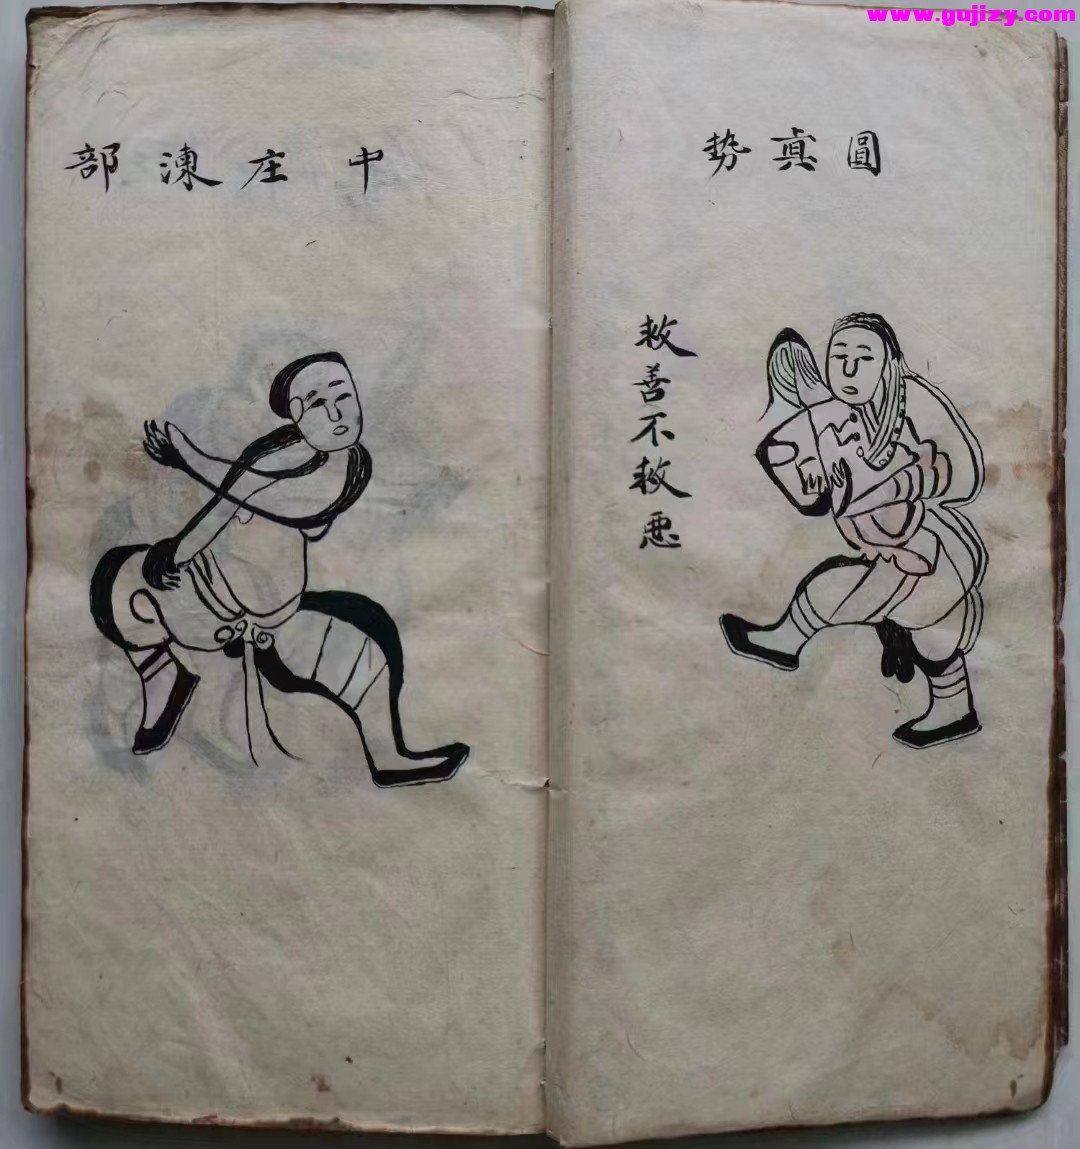 www.gujizy.com
圓真勢
救善不救惡
中庄湅部